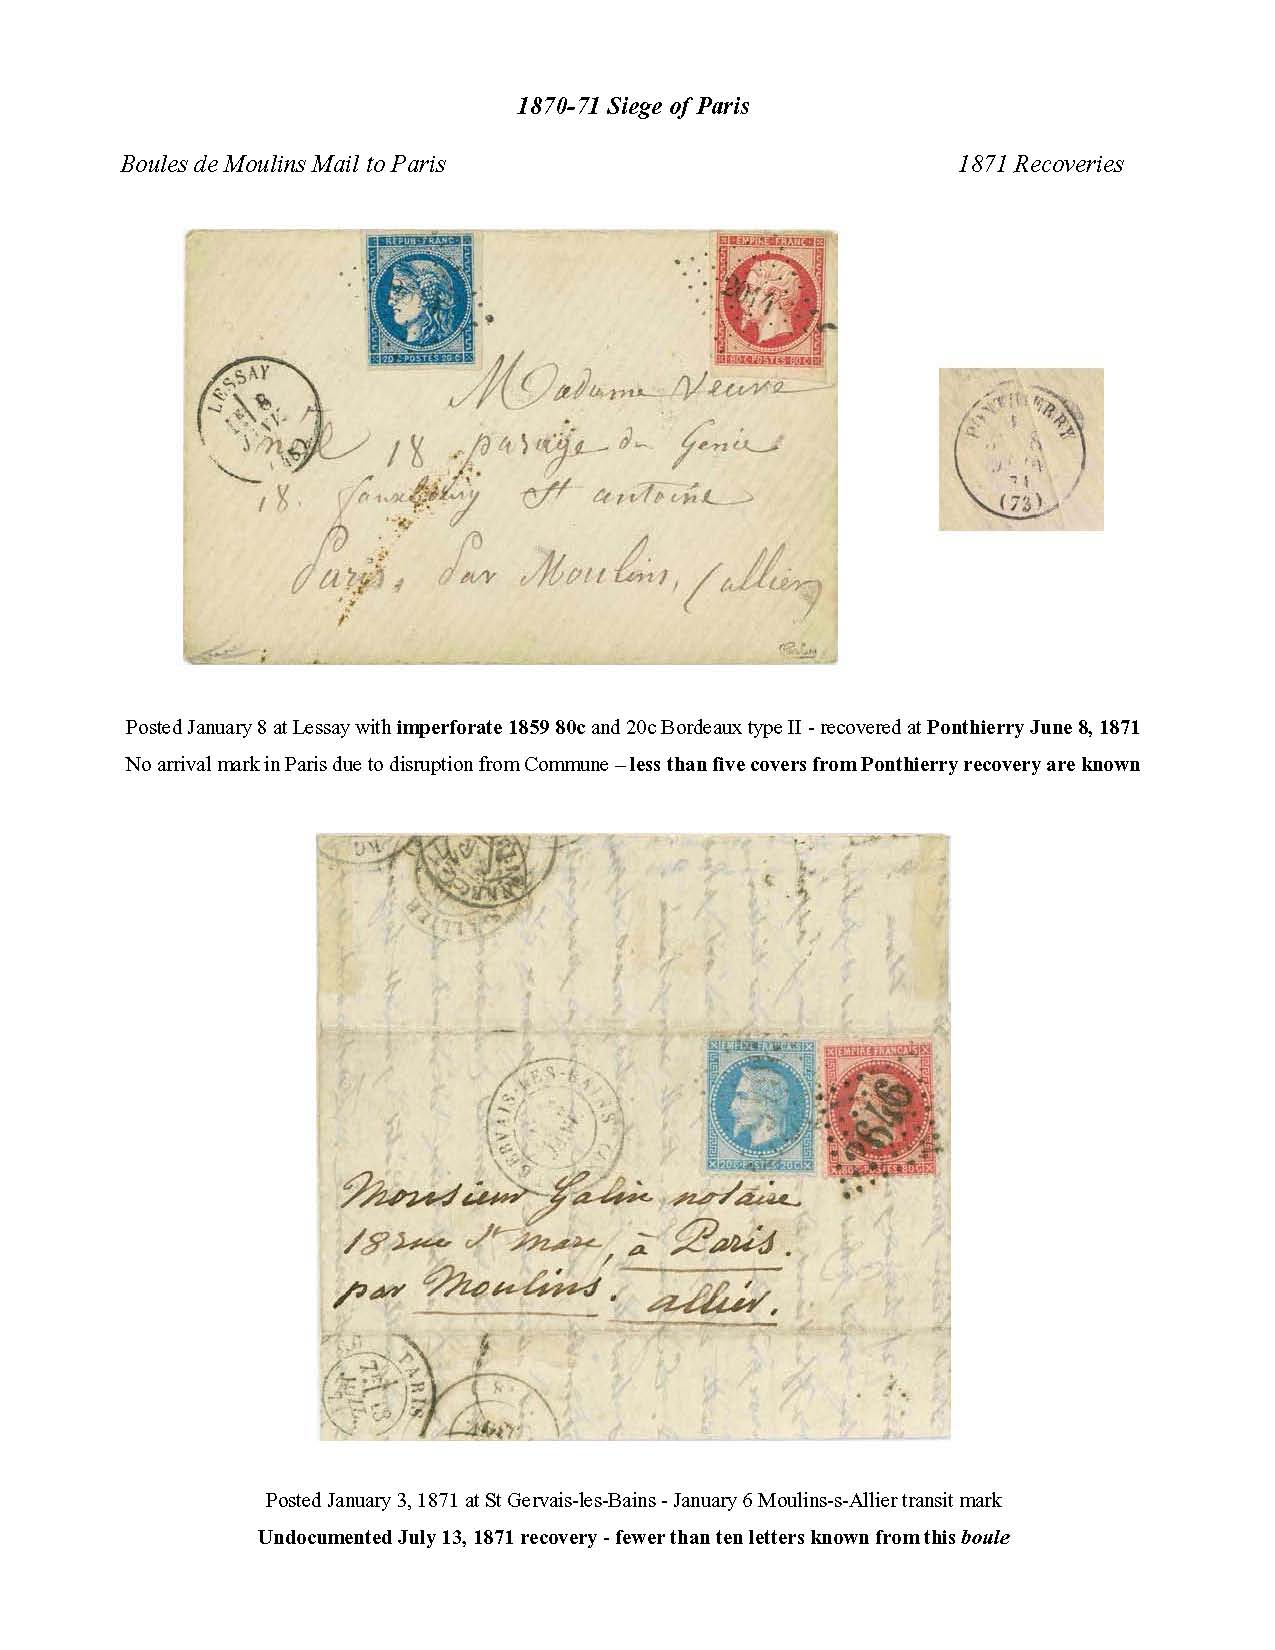 1870-71 Siege of Paris
Boules de Moulins Mail to Paris
1871 Recoveries
REPUB·FRANC·
20 C·POSTES 20 C·
EMPIRE FRANC·
80 C·POSTES·80 C·
2014
LESSAY
8
Madame Veuve
18 passage du Genie
18. fauxbourg St antoine
Paris, Par Moulins, (allier)
PONTHIERRY
8
71
(73)
Posted January 8 at Lessay with imperforate 1859 80c and 20c Bordeaux type II - recovered at Ponthierry June 8, 1871
No arrival mark in Paris due to disruption from Commune – less than five covers from Ponthierry recovery are known
GERVAIS-LES-BAINS
EMPIRE FRANÇAIS
20 C·POSTES·20 C
EMPIRE FRANÇAIS
80 C·POSTES·80 C
Monsieur Galin notaire
18 rue St Marc, à Paris.
par Moulins. allier.
PARIS
7E
13
JUIL
71
Posted January 3, 1871 at St Gervais-les-Bains - January 6 Moulins-s-Allier transit mark
Undocumented July 13, 1871 recovery - fewer than ten letters known from this boule